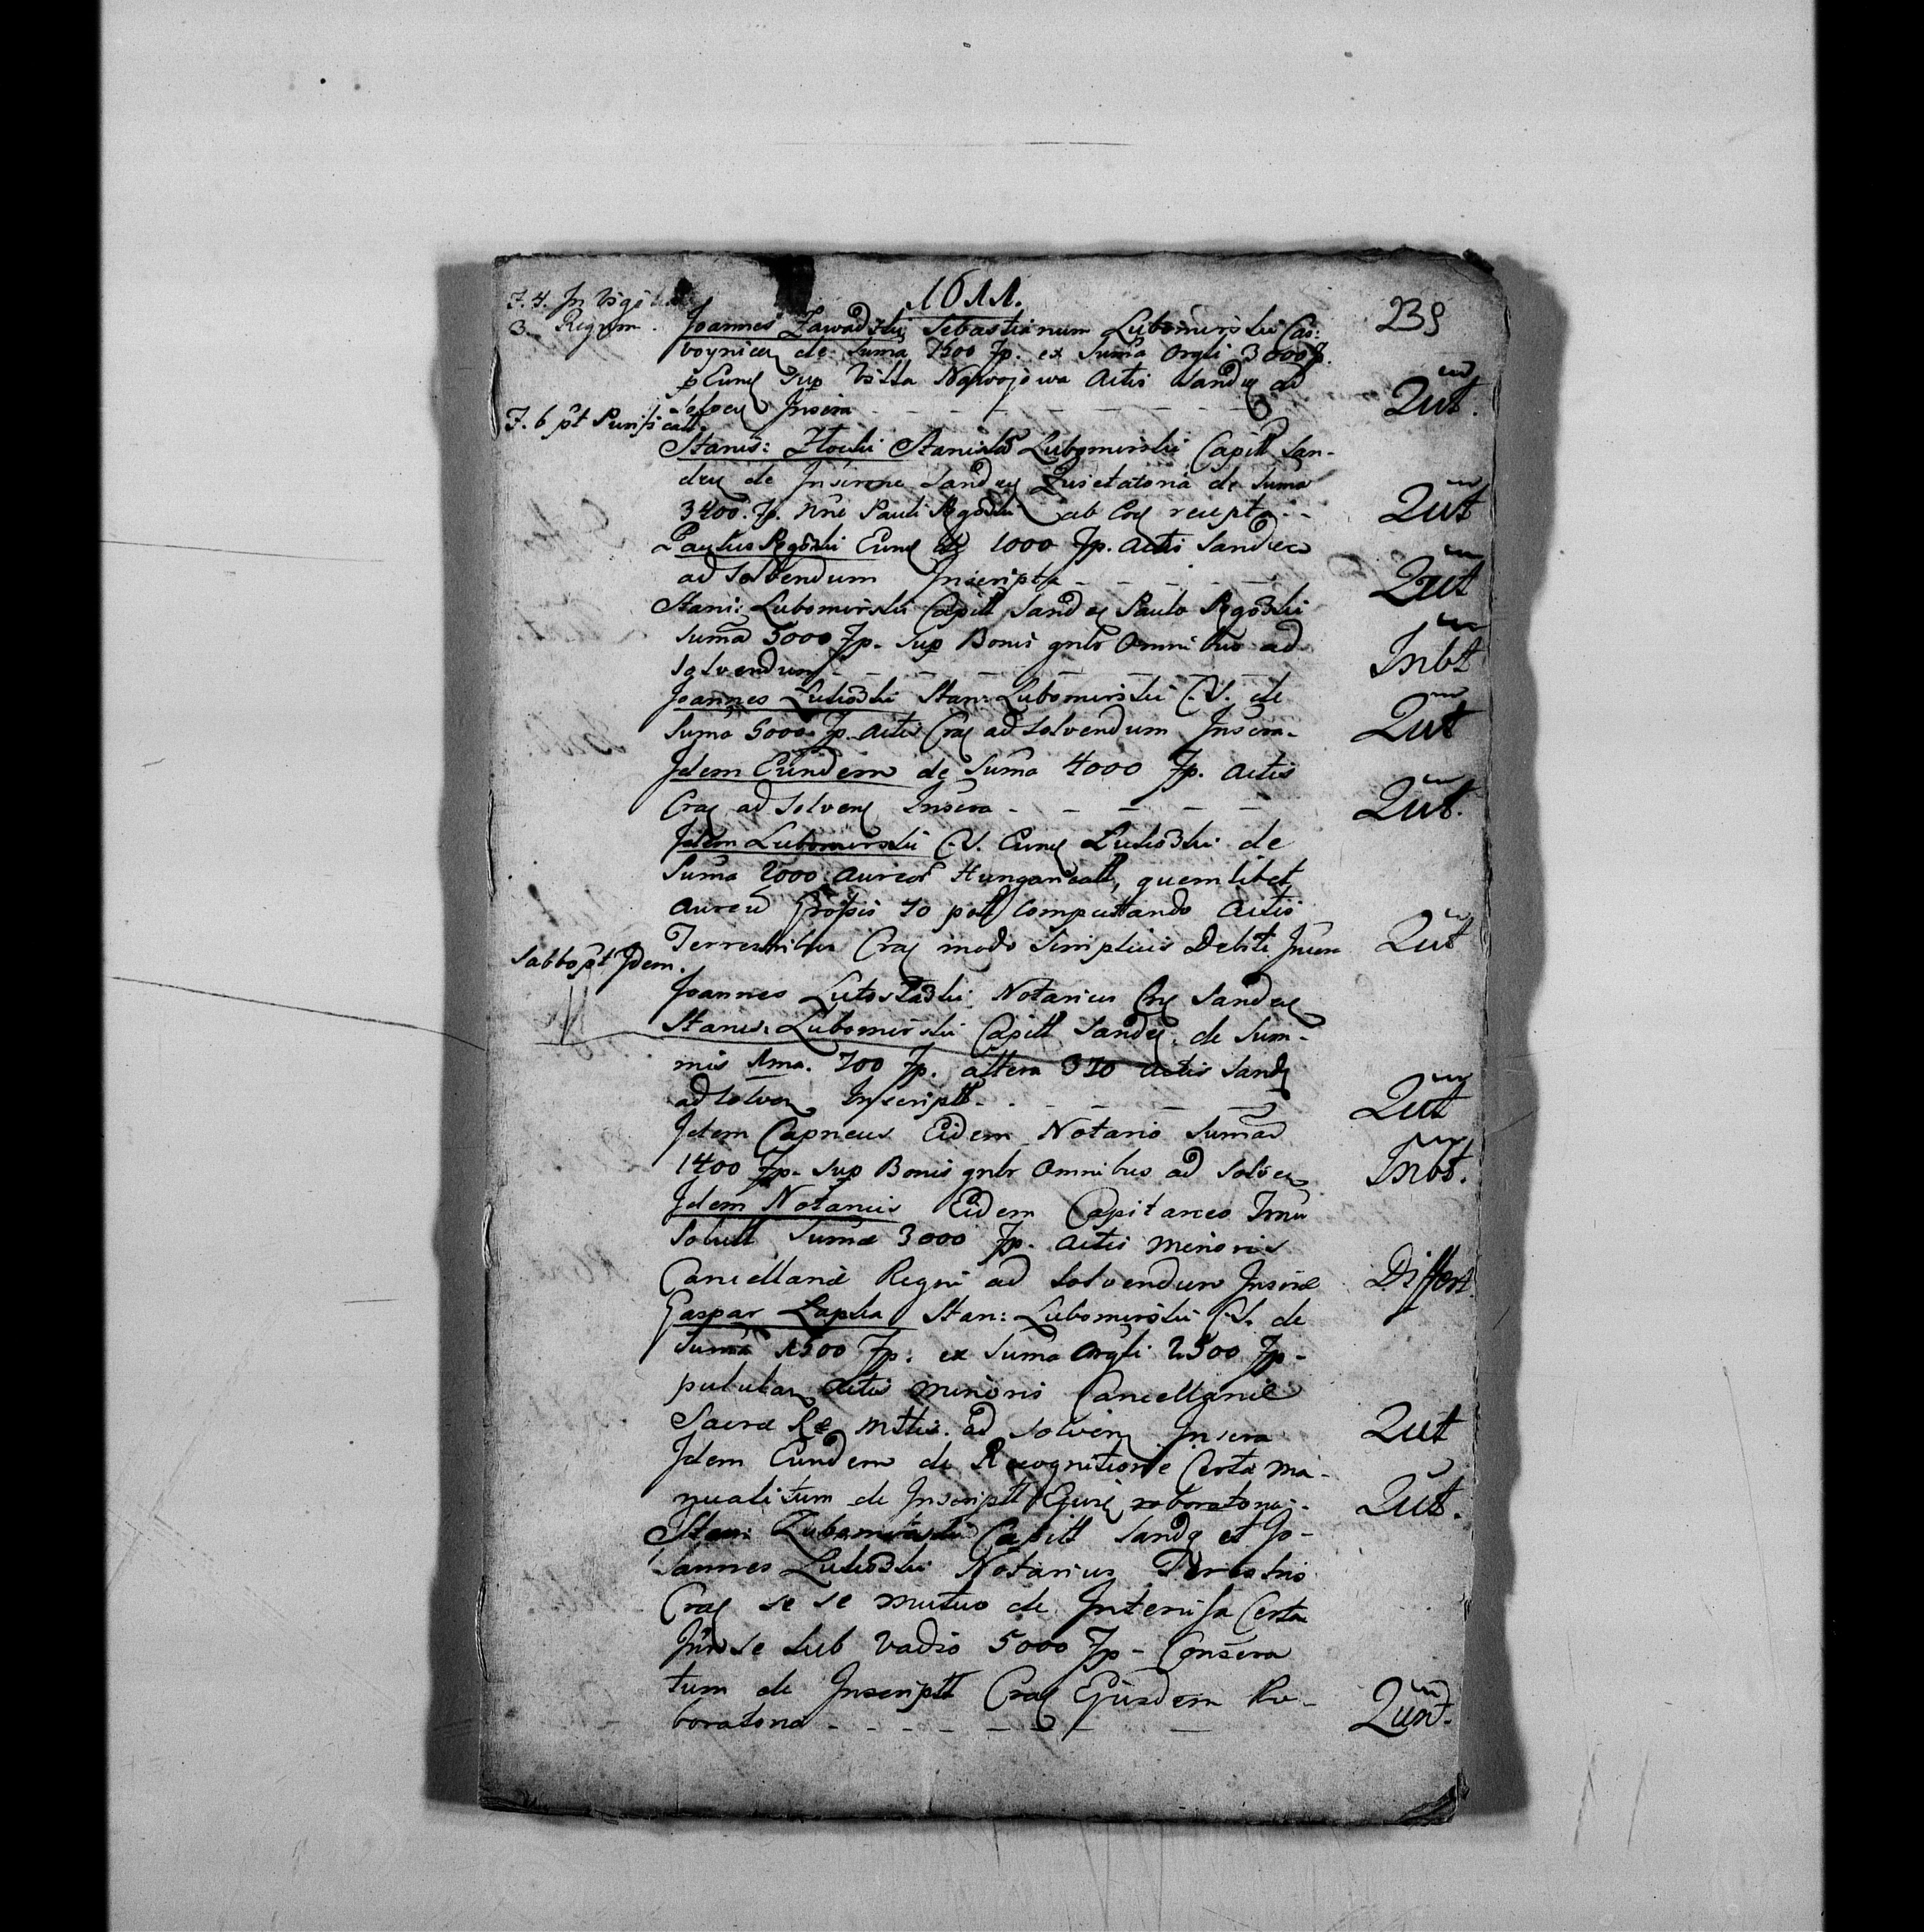 1611.
239
F. 4. In Vigilia
3. Regum.
Joannes Zawadzki Sebastianum Lubomirski Cas:
voynicen de Suma 1500 fp. ex Suma Orgli 3000 f.
p Eund Sup Villa Nawojowa Actis Sandec ad
solven Inscra - - - - Qut.
F. 6 pt Purificatt.
Stanis: Zlocki Stanisla Lubomirski Capitt San-
decen de Inscrne Sandec Quietatoria de Suma
3400. fp. nne Pauli Rgoski ab Eod recepta - - Qut
Paulus Rgoski Eund de 1000 fp. Actis Sandec
ad Solvendum Inscripta - - - - Qut
Stani: Lubomirski Capitt Sandec Paulo Rgoski
Suma 5000 fp. Sup Bonis gnlr Omnibus ad
solvendum - - - - Inbt
Joannes Lutoski Stan: Lubomirski C.S. de
Suma 5000 fp. Actis Crac ad Solvendum Inscra - Qut
Idem Eundem de Suma 4000 fp. Actis
Crac ad Solvend Inscra - - - - Qut.
Idem Lubomirski C.S. Eund Lutoski de
Suma 2000 Aureor Hungaricall, quemlibet
Aureu Grossis 70 poll Computtando Actis
Terrestribus Crac modo Simplicis Debiti Inscra Qut
Sabbo pt Idem.
Joannes Lutoslaski Notarius Crac Sandec
Stanis: Lubomirski Capitt Sandec de Sum-
mis 1ma. 700 fp. altera 370 Actis Sand
ad Solven Inscriptt - - - - Qut
Idem Capneus Eidem Notario Suma
1400 fp. Sup Bonis gnlr Omnibus ad Solven Inbt.
Idem Notarius Eidem Capitaneo Tmu
Solutt Suma 3000 fp. Actis Minoris
Cancellariæ Regni ad Solvendum Inscræ Differt.
Gaspar Lapka Stan: Lubomirski C.S. de
Suma 1500 fp. ex Suma Orgli 2500 fp -
pulular Actis Minoris Cancellariæ
Sacræ Ræ Mttis. ad Solven Inscra Qut
Idem Eundem de Recognitione Certa Ma-
nuali tum de Inscriptt Ejusd roboratoria - Qut.
Stan: Lubomirski Capitt Sandc et Jo-
annes Lutoski Notarius Terrestris
Crac se se mutuo de Intercisa Certa
Inter se Sub Vadio 5000 fp - Conscra
tum de Inscriptt Crac Ejusdem Ro-
boratoria - - - - Qunt.